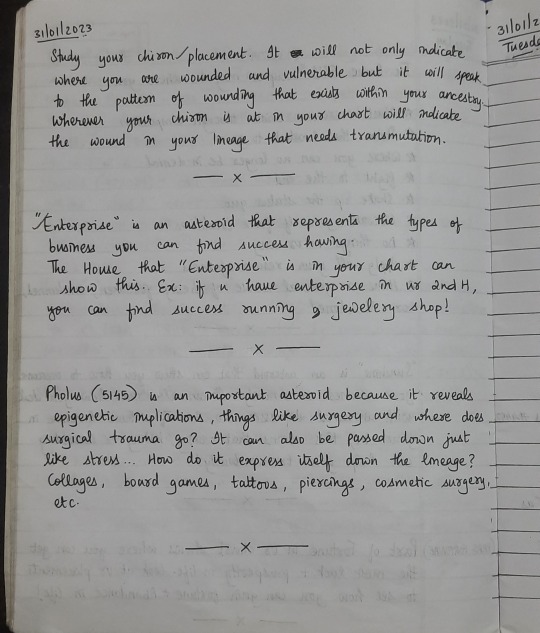 31/01/2023
Study your chiron/placement. It will not only indicate
where you are wounded and vulnerable but it will speak
to the pattern of wounding that exists within your ancestry.
Wherever your chiron is at in your chart will indicate
the wound in your lineage that needs transmutation.
— x —
"Enterprise" is an asteroid that represents the types of
business you can find success having.
The House that "Enterprise" is in your chart can
show this. Ex: if u have enterprise in ur 2nd H,
you can find success running a jewelery shop!
— x —
Pholus (5145) is an important asteroid because it reveals
epigenetic implications, things like surgery and where does
surgical trauma go? It can also be passed down just
like stress... How do it express itself down the lineage?
Collages, board games, tattous, piercings, cosmetic surgery,
etc.
— x —
31/01/2
Tuesd